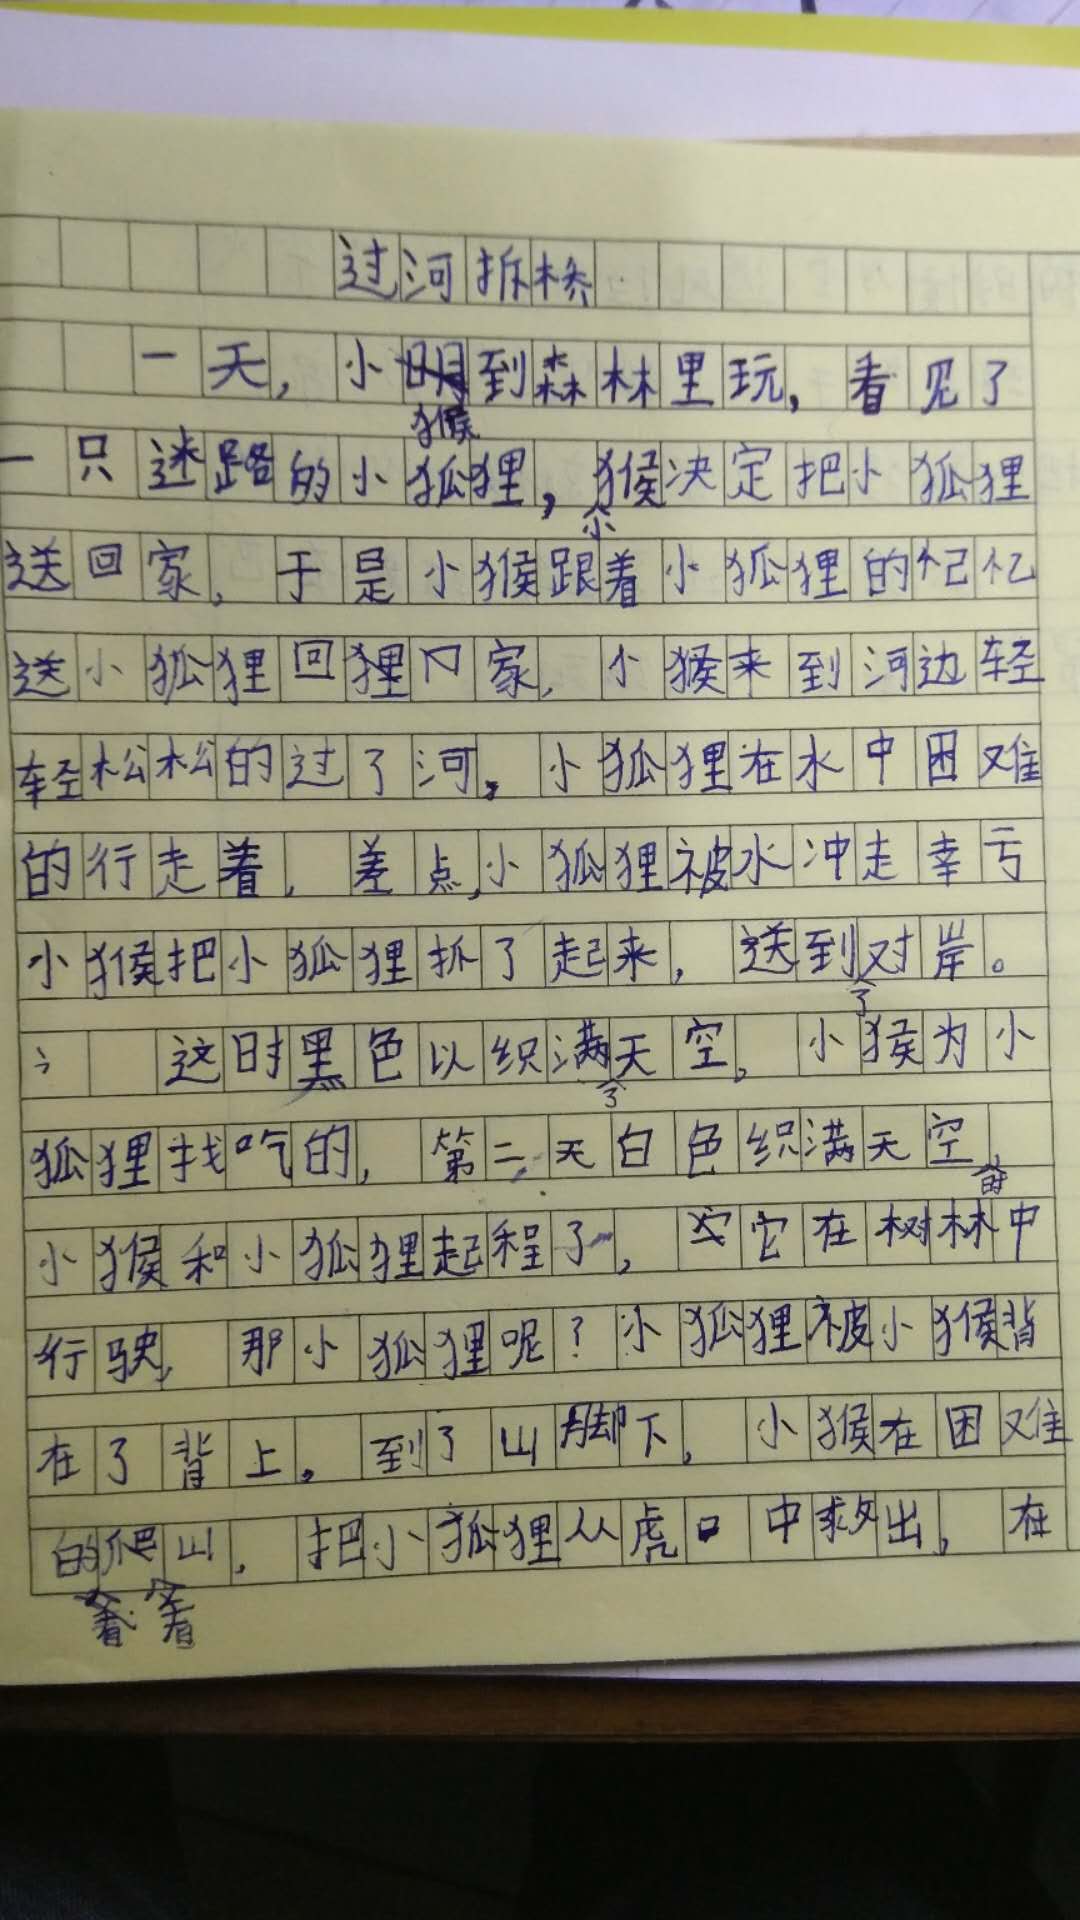 过河拆桥
一天，小猴到森林里玩，看见了
一只迷路的小狐狸，小猴决定把小狐狸
送回家，于是小猴跟着小狐狸的记忆
送小狐狸回狸口家，小猴来到河边轻
轻松松的过了河，小狐狸在水中困难
的行走着，差点，小狐狸被水冲走幸亏
小猴把小狐狸抓了起来，送到了对岸。
这时黑色以织满了天空，小猴为小
狐狸找吃的，第二天白色织满天空时，
小猴和小狐狸起程了，它在树林中
行驶，那小狐狸呢？小狐狸被小猴背
在了背上。到了山脚下，小猴在困难
的爬着山，把小狐狸从虎口中救出，在